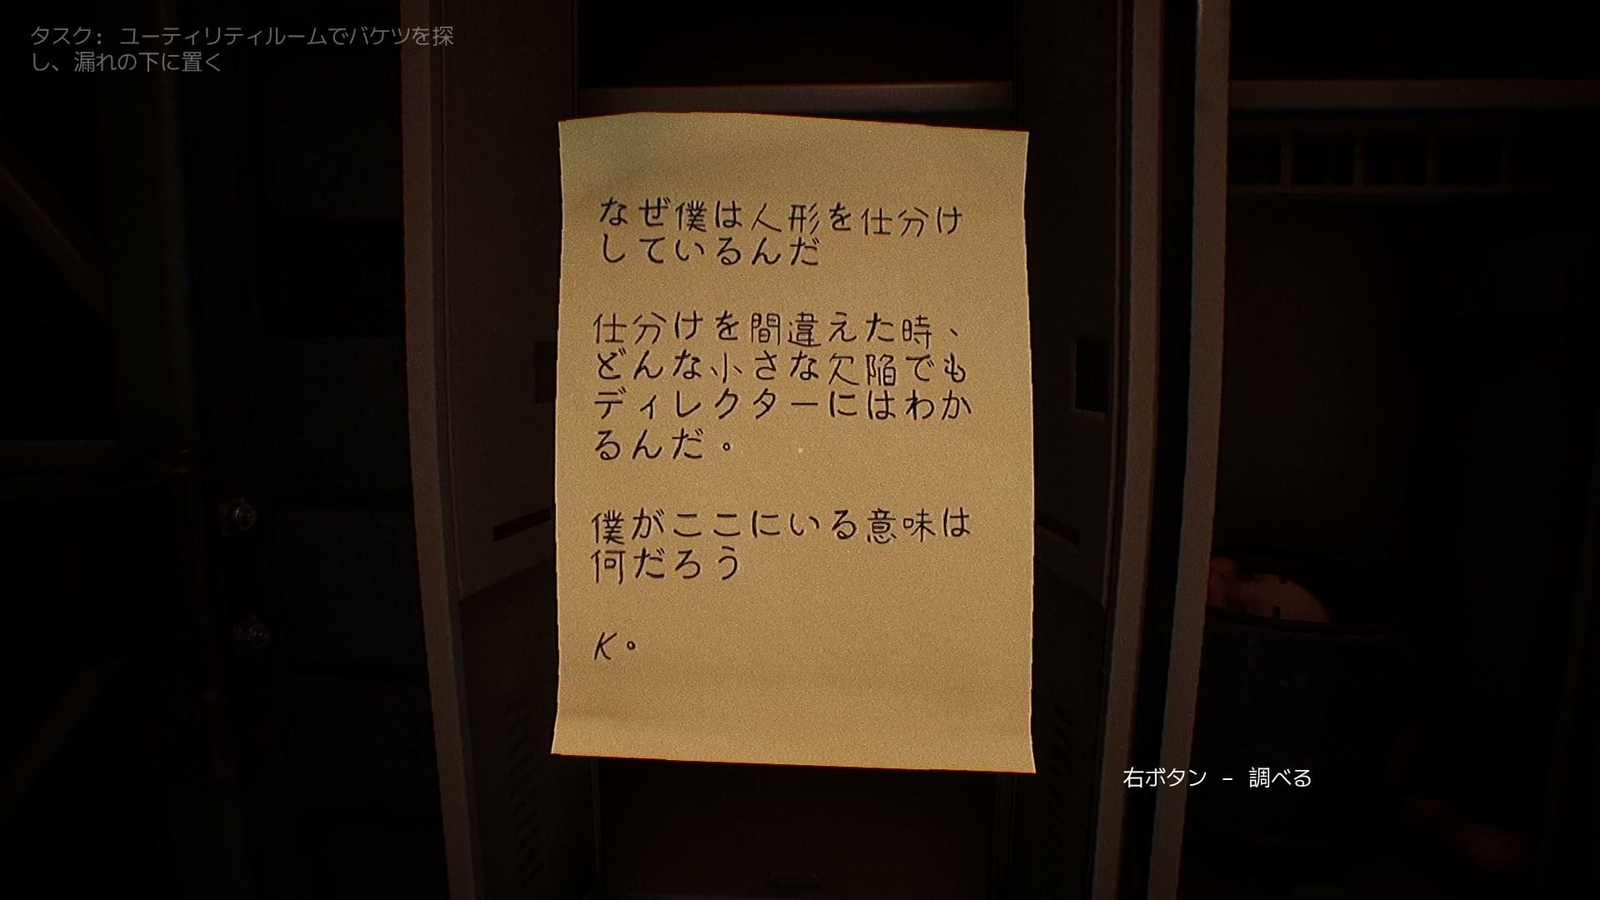 タスク: ユーティリティルームでバケツを探
し、漏れの下に置く
なぜ僕は人形を仕分け
しているんだ
仕分けを間違えた時、
どんな小さな欠陥でも
ディレクターにはわか
るんだ。
僕がここにいる意味は
何だろう
K。
右ボタン - 調べる